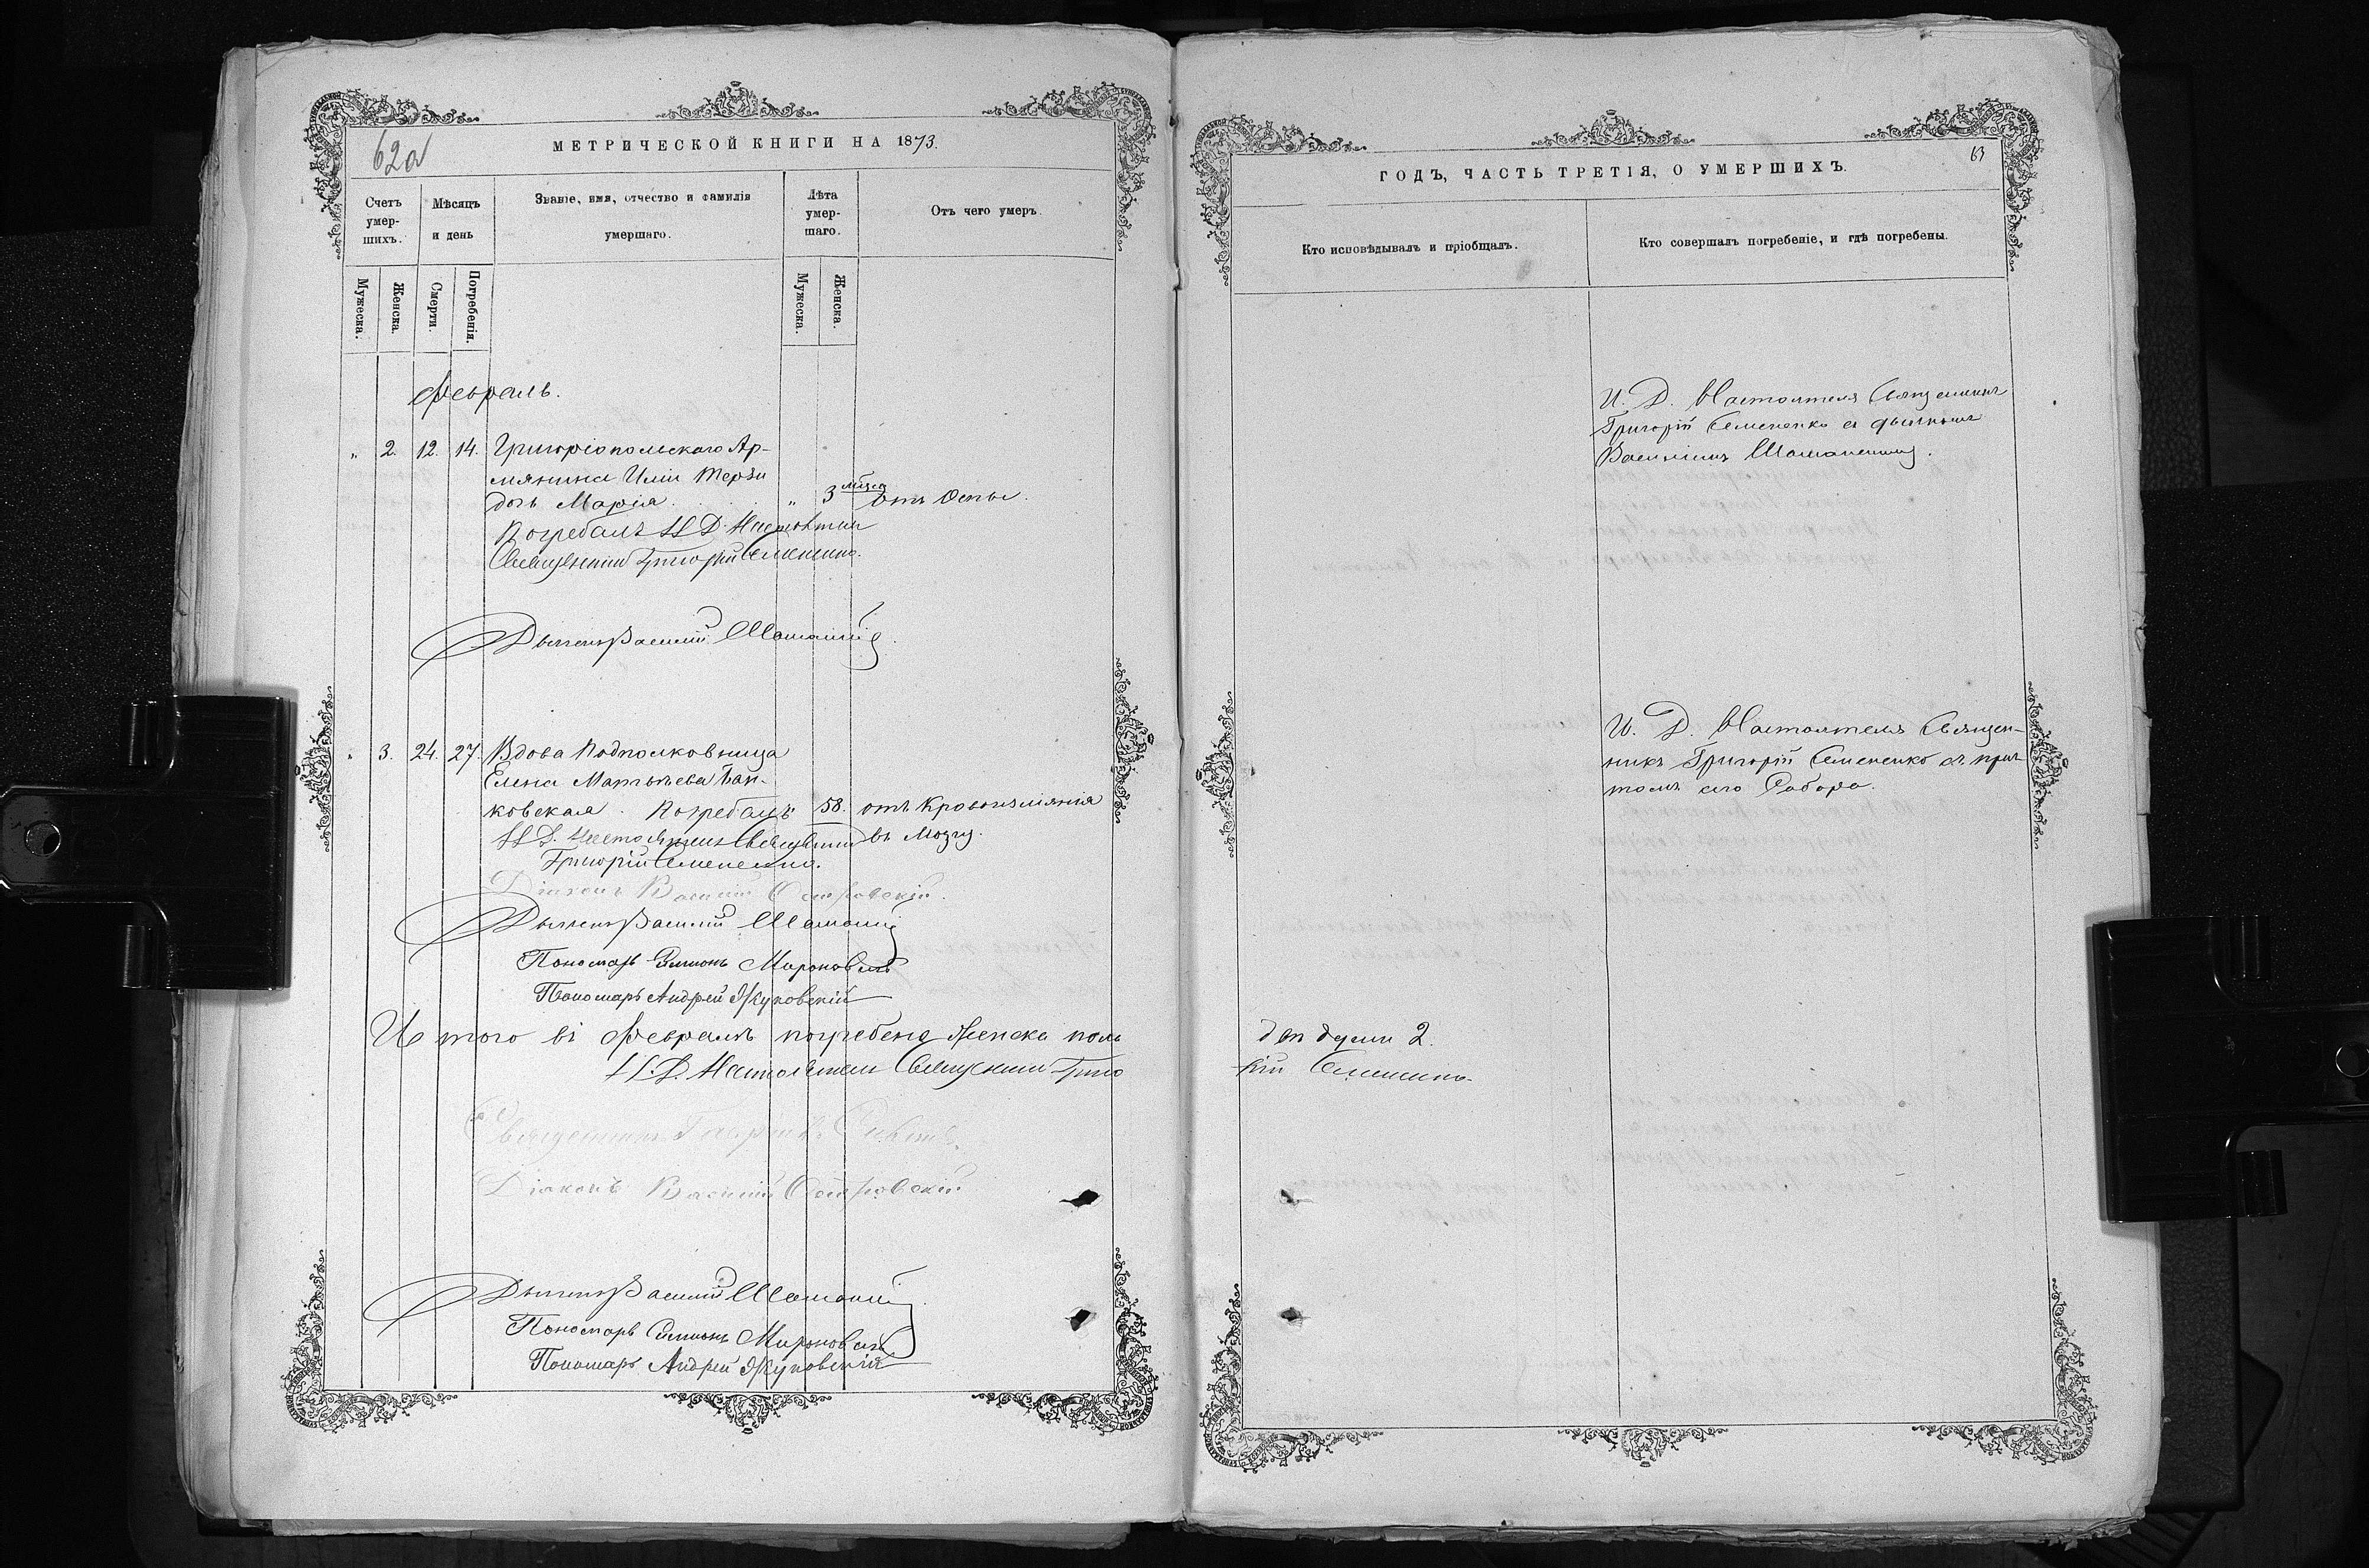 62
МЕТРИЧЕСКОЙ КНИГИ НА 1873.
Счетъ умер-шихъ.
Мѣсяцъ и день
Званіе, имя, отчество и фамилія умершаго.
Лѣта умер-шаго.
Отъ чего умеръ.
Мужеска.
Женска.
Смерти.
Погребенія.
Мужеска.
Женска.
Февраль.
„ 2. 12. 14. Григоріопольскаго Ар-
мянина Иліи Терзи
дочь Марія. „ 3 мѣсяца отъ Оспы.
Погребалъ И. Д. Настоятеля
Священникъ Григорій Семененко.
Дьячекъ Василій
„ 3. 24. 27. Вдова Подполковница
Елена Матвѣева Бан-
ковская. Погребалъ 58. отъ Кровоизліянія
И. Д. Настоятеля Священникъ въ Мозгу.
Григорій Семененко.
Діаконъ Василій Островскій.
Дьячекъ Василій
Пономарь Симеонъ Мироновичъ
Пономарь Андрей Жуковскій
Итого въ Февралѣ погребено Женска пола
И. Д. Настоятеля Священникъ Григо
Священникъ
Діаконъ Василій Островскій
Дьячекъ Василій
Пономарь Симеонъ Мироновичъ
Пономарь Андрей Жуковскій
63
ГОДЪ, ЧАСТЬ ТРЕТІЯ, О УМЕРШИХЪ.
Кто исповѣдывалъ и пріобщалъ.
Кто совершалъ погребеніе, и гдѣ погребены.
И. Д. Настоятеля Священникъ
Григорій Семененко съ дьячкомъ
Василіемъ
И. Д. Настоятеля Священ-
никъ Григорій Семененко съ прич-
томъ сего Собора.
души 2.
рій Семененко